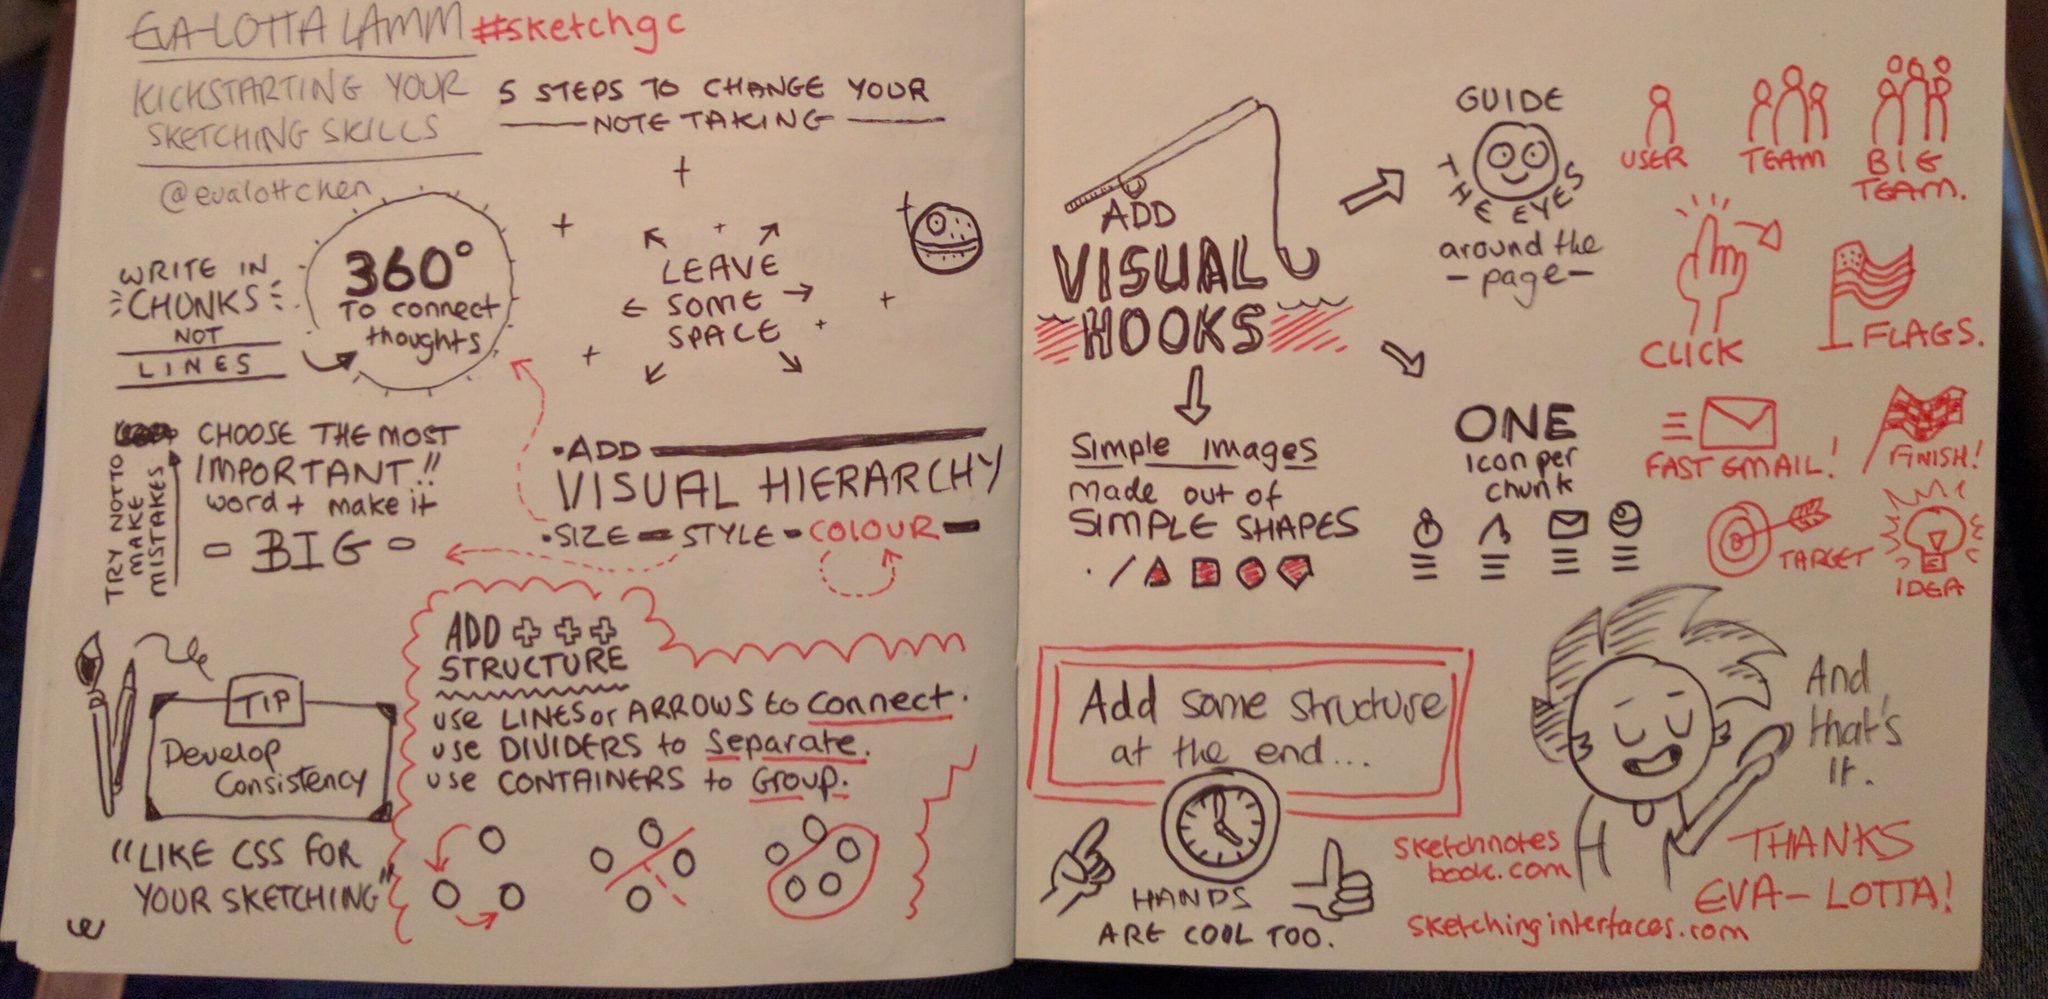 EVA-LOTTA LAMM #sketchgc
KICKSTARTING YOUR
SKETCHING SKILLS
@evalottchen
5 STEPS TO CHANGE YOUR
NOTE TAKING
WRITE IN
CHUNKS
NOT
LINES
360°
To connect
thoughts
LEAVE
SOME
SPACE
TRY NOT TO
MAKE
MISTAKES
CHOOSE THE MOST
IMPORTANT!!
word + make it
BIG
• ADD
VISUAL HIERARCHY
• SIZE - STYLE - COLOUR -
TIP
Develop
Consistency
"LIKE CSS FOR
YOUR SKETCHING"
ADD + + +
STRUCTURE
USE LINES or ARROWS to connect.
USE DIVIDERS to Separate.
USE CONTAINERS to Group.
ADD
VISUAL
HOOKS
GUIDE
THE EYES
around the
- page -
Simple images
made out of
SIMPLE SHAPES
ONE
icon per
chunk
USER
TEAM
BIG
TEAM.
CLICK
FLAGS.
FAST EMAIL!
FINISH!
TARGET
IDEA
Add some structure
at the end...
HANDS
ARE COOL TOO.
And
that's
it.
sketchnotes
book.com
THANKS
EVA-LOTTA!
sketchinginterfaces.com